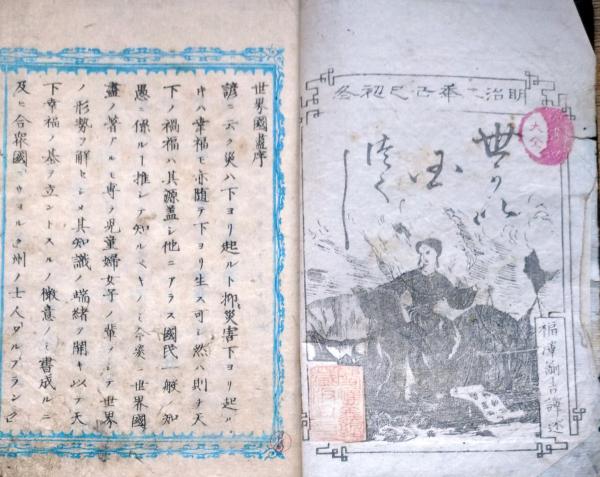 明治二年己巳初冬
世かい
国
つくし
福澤諭吉譯述
世界國盡序
諺ニ云ク災ハ下ヨリ起ルト抑災害下ヨリ起レ
ハ幸福モ亦随テ下ヨリ生ス可シ然ハ則チ天
下ノ禍福ハ其源蓋シ他ニアラス國民一般ノ知
愚ニ係ルヿ推シテ知ルベキノミ今爰ニ世界國
盡ノ著アルモ専ラ児童婦女子ノ輩ヲシテ世界
ノ形勢ヲ解セシメ其知識ノ端緒ヲ開キ以テ天
下幸福ノ基ヲ立ントスルノ微意ノミ書成ルニ
及ヒ合衆國ニウヨルク州ノ士人ワルブランク